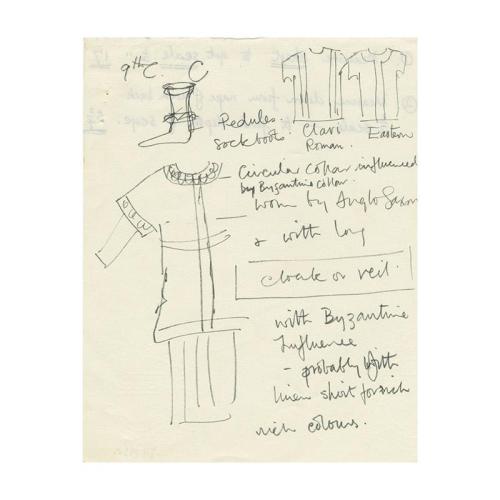 9th C. C
Pedules
sock boots.
Clavi
Roman.
Eastern
Circular Collar influenced
by Byzantine Collar.
worn by Anglo Saxon
& with long
cloak or veil.
with Byzantine
Influence
- probably with
linen shirt for rich
rich colours.